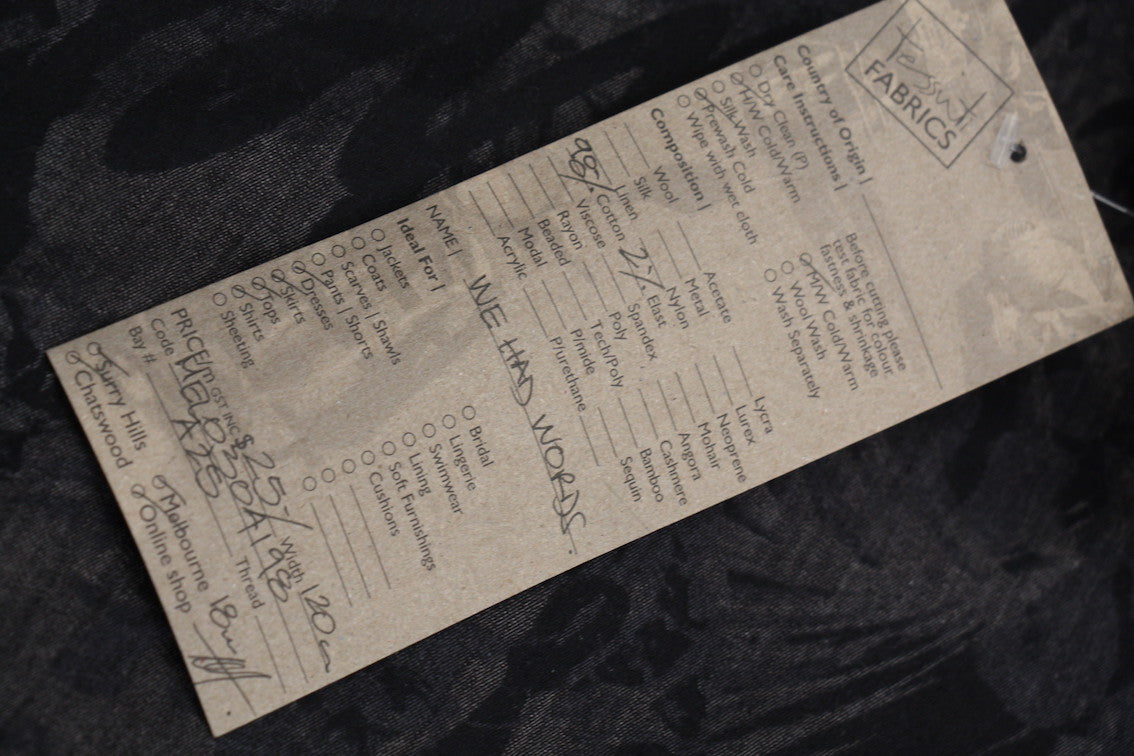 Tessuti
FABRICS
Country of Origin |
Care Instructions |
Dry Clean (P)
H/W Cold/Warm
Silk Wash
Prewash Cold
Wipe with wet cloth
Before cutting please
test fabric for colour
fastness & shrinkage
M/W Cold/Warm
Wool Wash
Wash Separately
Composition |
Wool
Silk
Linen
98% Cotton
Viscose
Rayon
Beaded
Modal
Acrylic
Acetate
Metal
Nylon
2% Elast
Spandex
Poly
Tech/Poly
P/mide
P/urethane
Lycra
Lurex
Neoprene
Mohair
Angora
Cashmere
Bamboo
Sequin
NAME | WE HAD WORDS.
Ideal For |
Jackets
Coats
Scarves | Shawls
Pants | Shorts
Dresses
Skirts
Tops
Shirts
Sheeting
Bridal
Lingerie
Swimwear
Lining
Soft Furnishings
Cushions
PRICE/m GST INC $25-/ Width 120cm
Code
Bay # A25 Thread
Surry Hills
Chatswood
Melbourne
Online shop